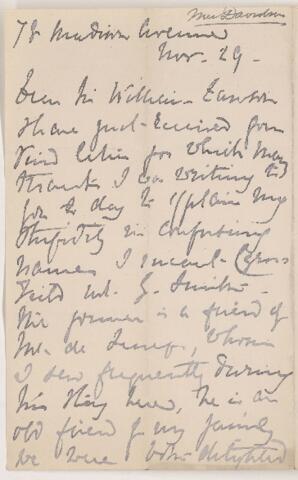 Mrs Davidson
78 Madison Avenue
Nov. 29 -
Dear Sir William - Lawson
I have just received your
kind letter for which many
thanks I was writing to
you to day to explain my
stupidity in confusing
names I meant
not G. Smith -
the former is a friend of
Mr. de , whom
I saw frequently during
his stay here, he is an
old friend of my family
we were both delighted